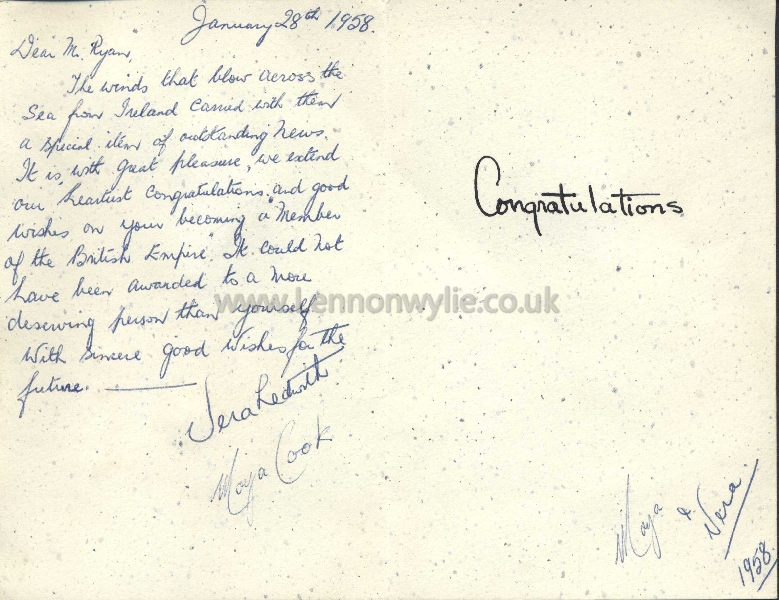 January 28th 1958.
Dear M. Ryan,
The winds that blow across the
Sea from Ireland carried with them
a special item of outstanding news.
It is, with great pleasure, we extend
our heartiest congratulations and good
wishes on your becoming a "Member
of the British Empire". It could not
have been awarded to a more
deserving person than yourself
With sincere good wishes for the
future.
Vera Ledwith
Moya Cook
Congratulations
www.Lennonwylie.co.uk
Moya & Vera
1958